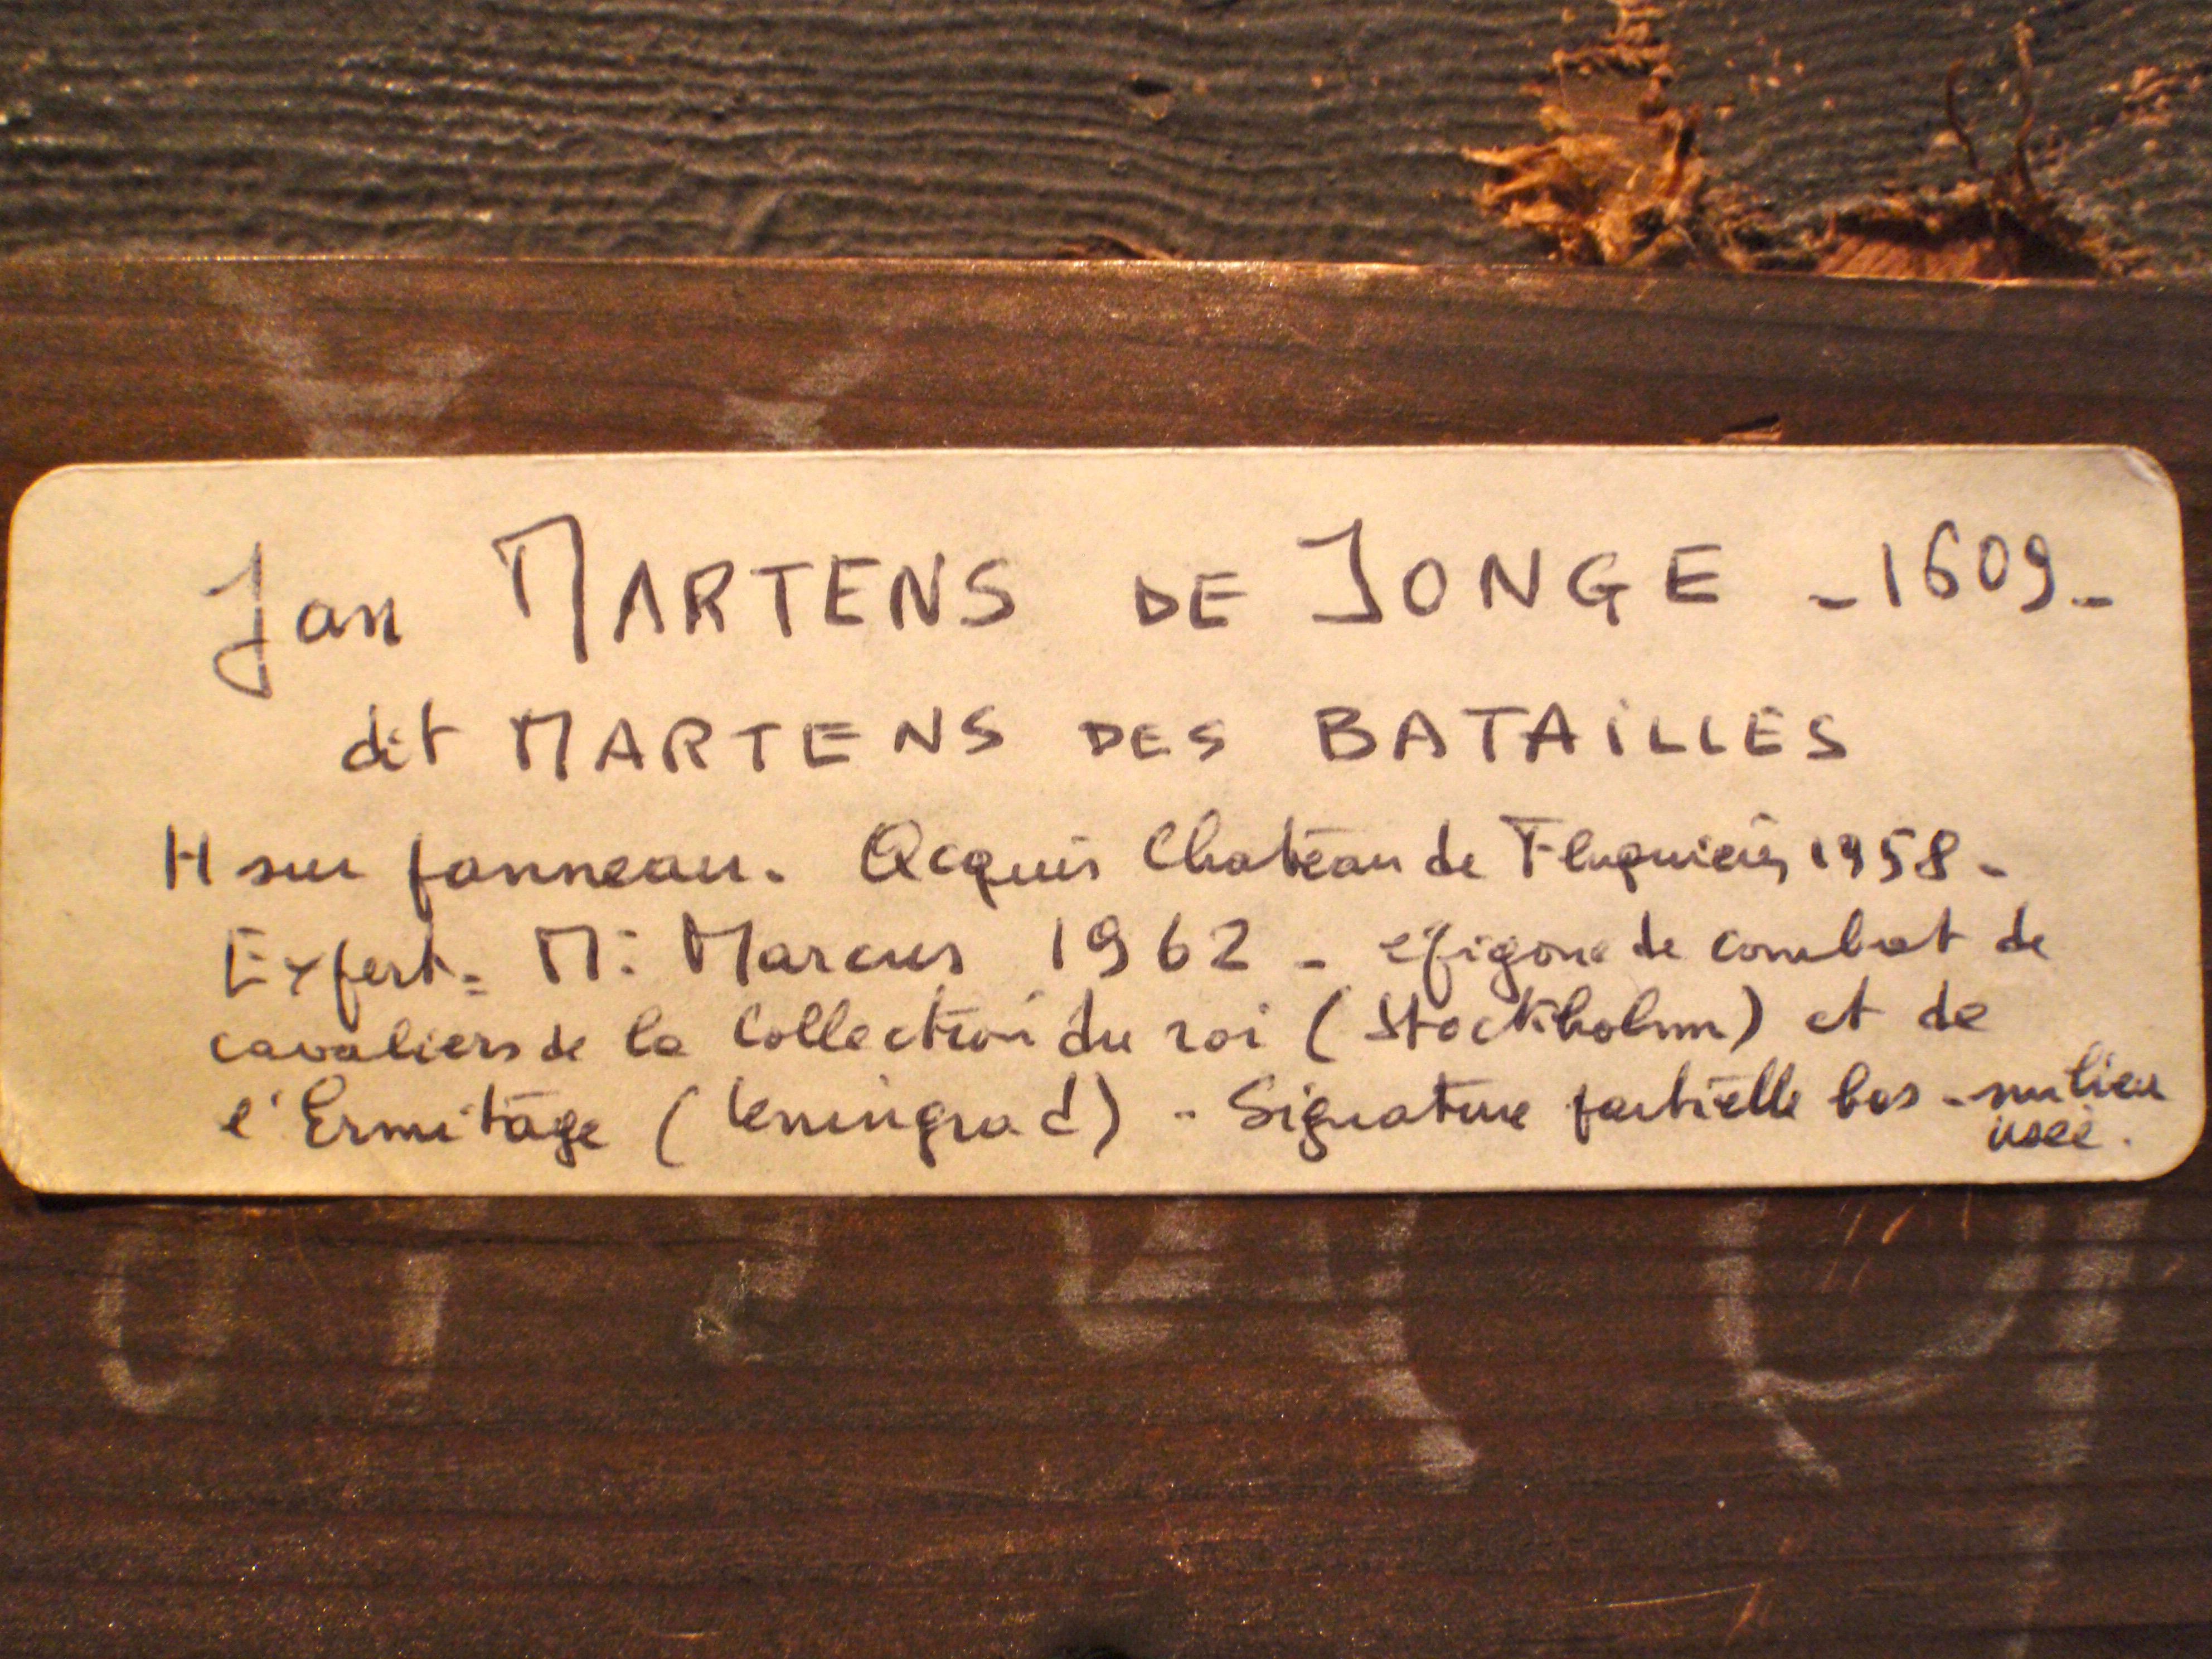 Jan MARTENS DE JONGE - 1609 -
dit MARTENS DES BATAILLES
H sur panneau. Acquis Chateau de Fluquières 1958 -
Expert = M: Marcus 1962 - epigone de combat de
cavaliers de la Collection du roi (Stockholm) et de
l'Ermitage (Leningrad) - Signature partielle bas - milieu
usée.